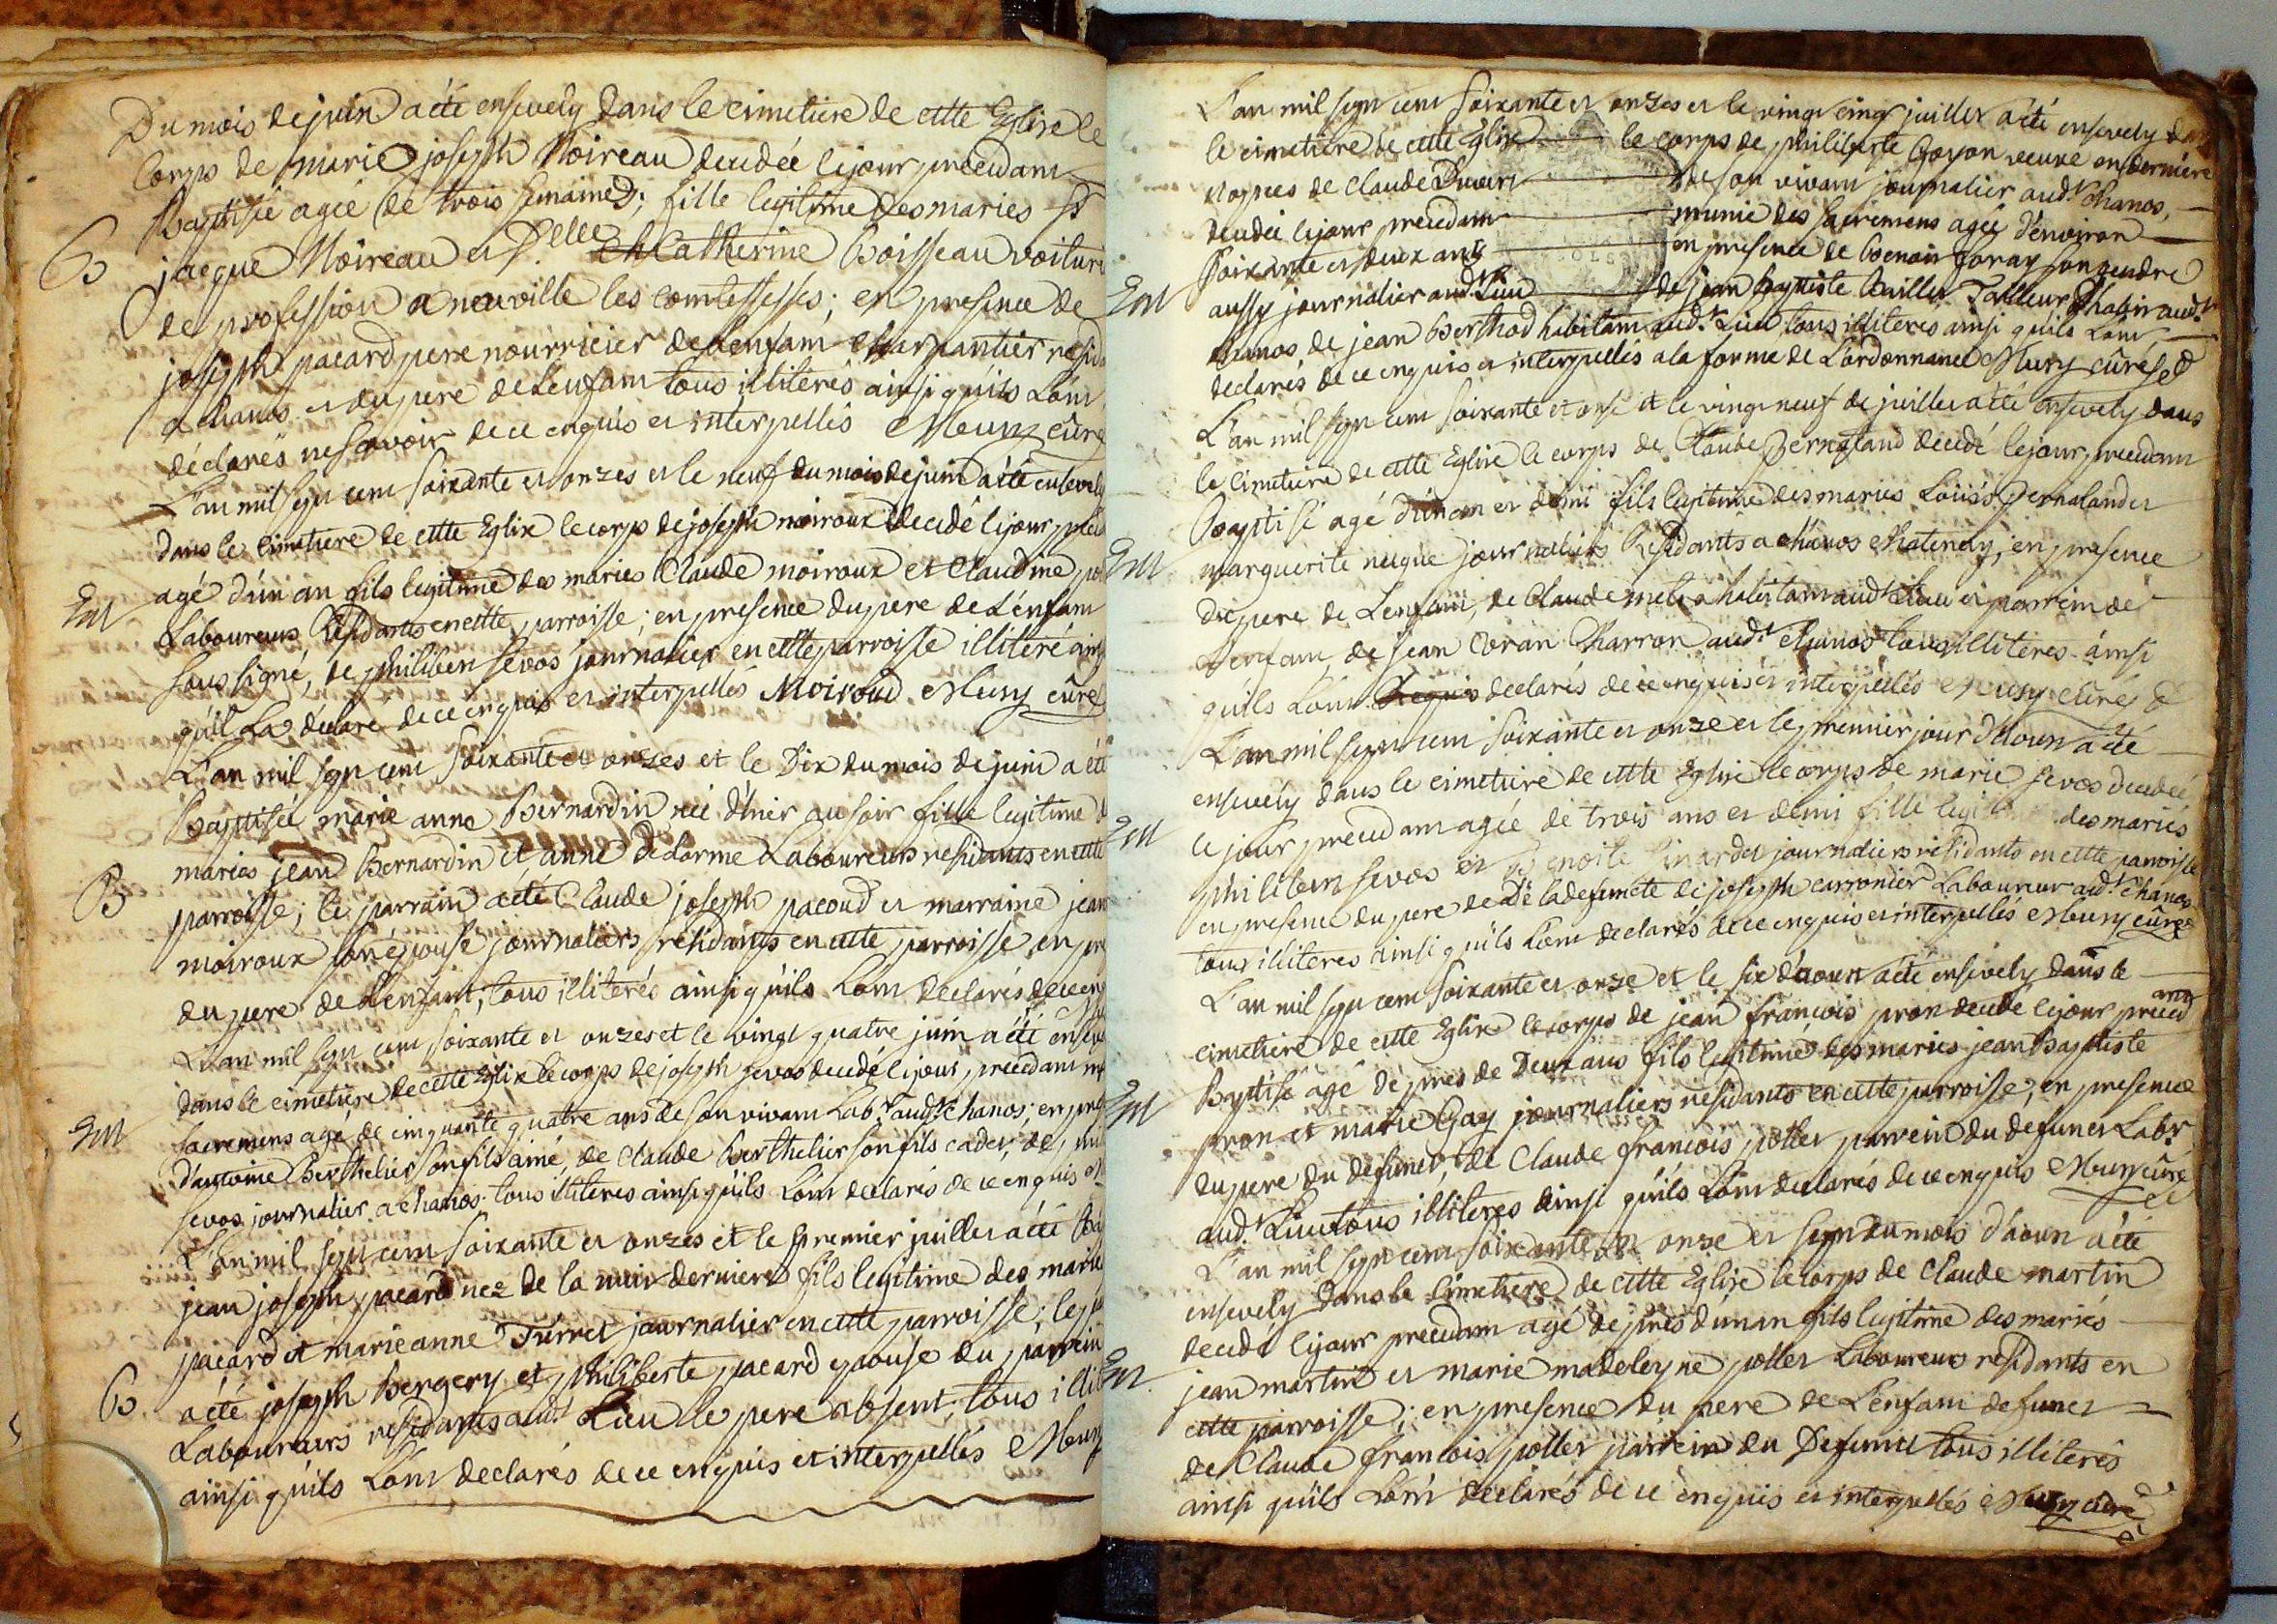 Du mois de juin a été ensevely dans le cimetiere de cette Eglise le
Corps de marie joseph Noireau decedée le jour precedam
Baptisée agée de trois semaines; fille legitime des maries Sr
B
jacque Noireau et Delle Catherine Boisseau voituri
de profession a neuville les comtesses; en presence de
joseph pacard pere nourricier de l'enfam charpantier resid
a chanos et du pere de L'enfam tous illiterés ainsi qu'ils L'om
déclarés ne savoir de ce enquis et interpellés Mury curé
L'an mil sept cent soixante et onzes et le neuf du mois de juin a été ensevely
dans le cimetiere de cette Eglise le corps de joseph moiroux decedé le jour preced
Em
agé d'un an fils legitime des maries Claude moiroux et Claudine
Laboureurs Residants en cette parroisse; en presence du pere de L'enfam
sous signé, de philibert sevos journalier en cette parroisse illiteré ainsy
qu'il La déclaré de ce enquis et interpellés Moiroud Mury curé
L'an mil sept cent soixante et onzes et le Dix du mois de juin a été
Baptisée marie anne Bernardin née d'hier au soir fille legitime d
maries jean Bernardin et anne delorme Laboureurs residants en cette
B
parroisse; le parrain a été Claude joseph pacoud et marraine jean
moiroux son épouse journaliers résidants en cette parroisse en pre
du pere de L'enfant; tous illiterés ainsi qu'ils L'om declarés de ce enq
L'an mil sept cent soixante et onzes et le vingt quatre juin a été enseve
dans le cimetiere de cette Eglise le corps de joseph sevos decedé le jour precedam
Em
sacremens agé de cinquante quatre ans de son vivam Labr. audt. Chanos; en pres
d'antoine Berthelier son fils ainé, de Claude Berthelier son fils cadet, de
sevos journalier a chanos tous illiteres ainsi qu'ils L'om declarés de ce enquis et
L'an mil sept cent soixante et onzes et le premier juillet a été Ba
jean joseph pacard nez de la nuit derniere fils legitime des marie
pacard et marie anne Turret journalier en cette parroisse; le p
B
a été joseph Bergery et philiberte pacard epouse du parrein
Laboureurs residants audt. Lieu le pere absent; tous illit
ainsi qu'ils L'om declarés de ce enquis et interpellés Mury
L'an mil sept cent soixante et onzes et le vingt cinq juillet a été ensevely dans
le cimetiere de cette Eglise le corps de philiberte Goyon veuve en derniere
Nopces de Claude de son vivam journalier audt. Chanos,
decedée le jour precedam munie des sacremens agée d'environ
soixante et deux ans en presence de Benoit foray son gendre
Em
aussy journalier audt. Lieu de jean baptiste Tailleur d'habit audt.
chanos de jean Berthod habitam audt. Lieu tous illiteres ainsi qu'ils L'om
declarés de ce enquis et interpellés a la forme de L'ordonnance Mury curé
L'an mil sept cent soixante et onse et le vingt neuf de juillet a été ensevely dans
le cimetiere de cette Eglise le corps de Claude decedé le jour precedam
Baptisé agé d'un an et demi fils legitime des maries Loüis et
Em
marguerite journaliers Residants a chanos Chatenay; en presence
du pere de L'enfam, de Claude habitam audt. Lieu et parrein de
L'enfam, de jean Charron audt. Chanos tous illiteres ainsi
qu'ils L'om declarés de ce enquis et interpellés Mury curé
L'an mil sept cent soixante et onze et le premier jour d'aoust a été
ensevely dans le cimetiere de cette Eglise le corps de marie sevos decedée
Em
le jour precedam agée de trois ans et demi fille legitime des mariés
philibert sevos et Benoite journaliers résidants en cette parroisse
en presence du pere de la defuncte de joseph carronier Laboureur audt. Chanos
tous illiteres ainsi qu'ils L'om declarés de ce enquis et interpellés Mury curé
L'an mil sept cent soixante et onze et le six d'aoust a été ensevely dans le
cimetiere de cette Eglise le corps de jean françois pron decede le jour precedant
Baptisé agé de pres de Deux ans fils legitime des maries jean Baptiste
Em
pron et marie Gay journaliers résidants en cette parroisse; en presence
du pere du defunct, de Claude francois pollet parrein du defunct Labr.
audt. Lieu tous illiteres ainsi qu'ils L'om declarés de ce enquis Mury curé
L'an mil sept cent soixante et onze et sept du mois d'aoust a été
ensevely dans le cimetiere de cette Eglise le corps de Claude martin
decedé le jour precedam agé de pres d'un an fils legitime des mariés
Em
jean martin et marie madeleyne pollet Laboureurs résidants en
cette parroisse; en presence du pere de L'enfam defunct
de Claude francois pollet parrein du Defunct tous illiterés
ainsi qu'ils L'om declarés de ce enquis et interpellés Mury curé